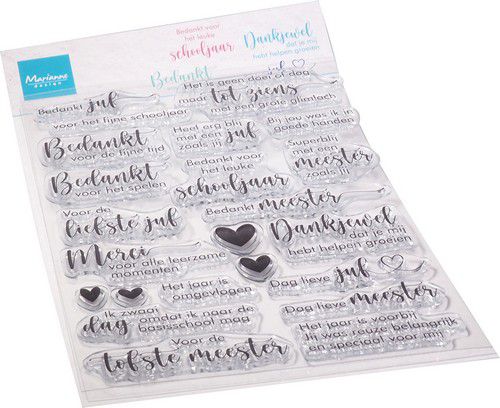 Bedankt voor
het leuke
schooljaar
Dankjewel
dat je mij
hebt helpen groeien
Marianne
design
Bedankt
juf
Bedankt juf
voor het fijne schooljaar
Het is geen doei of dag
maar tot ziens
met een grote glimlach
Bedankt
voor de fijne tijd
Heel erg blij
met een juf
zoals jij
Bij jou was ik in
goede handen
Bedankt
voor het spelen
Bedankt voor
het leuke
schooljaar
Superblij
met een
meester
zoals jij
Voor de
liefste juf
Bedankt meester
Merci
voor alle leerzame
momenten
Dankjewel
dat je mij
hebt helpen groeien
Het jaar is
omgevlogen
Dag lieve juf
Ik zwaai
dag omdat ik naar de
basisschool mag
Dag lieve meester
Voor de
tofste meester
Het jaar is voorbij
Jij was reuze belangrijk
en speciaal voor mij